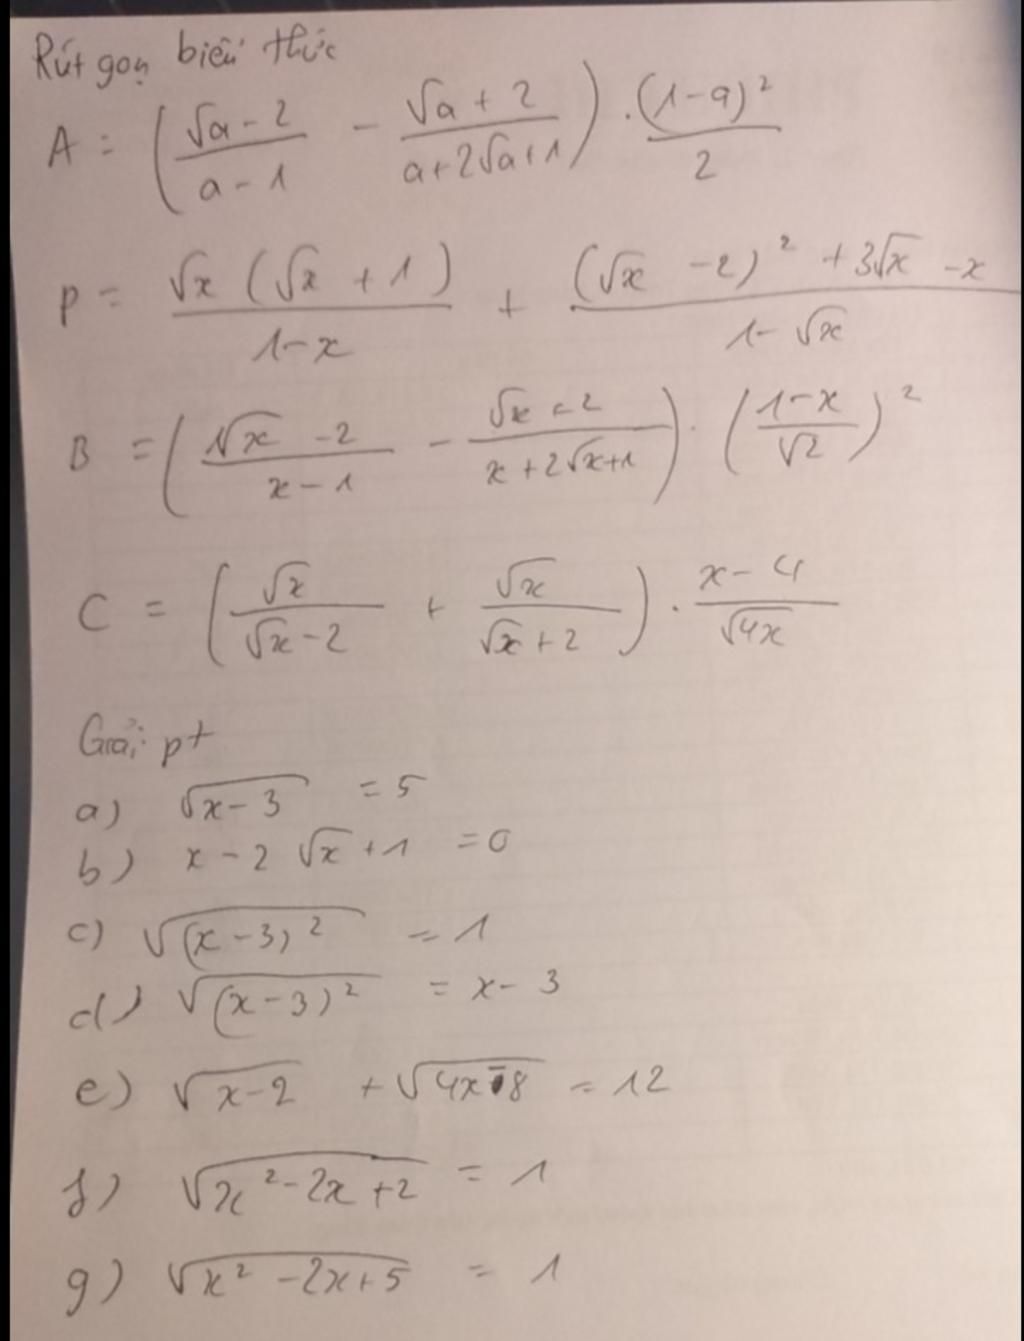 Rút gọn biểu thức
A = ( (√a - 2)/(a - 1) - (√a + 2)/(a + 2√a + 1) ) . (1 - a)²/2
P = √x (√x + 1)/(1 - x) + ((√x - 2)² + 3√x - x)/(1 - √x)
B = ( (√x - 2)/(x - 1) - (√x + 2)/(x + 2√x + 1) ) . ( (1 - x)/√2 )²
C = ( √x/(√x - 2) + √x/(√x + 2) ) . (x - 4)/√(4x)
Giải pt
a) √(x - 3) = 5
b) x - 2√x + 1 = 0
c) √((x - 3)²) = 1
d) √((x - 3)²) = x - 3
e) √(x - 2) + √(4x - 8) = 12
f) √(x² - 2x + 2) = 1
g) √(x² - 2x + 5) = 1